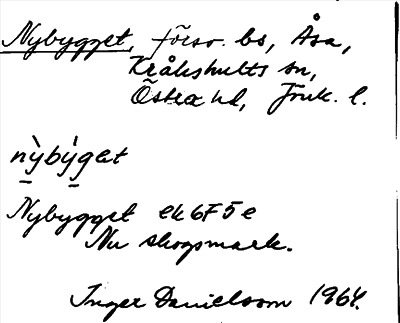 Nybygget, försv. bs, Åsa,
Kråkshults sn,
Östra hd, Jönk. l.
nỳbýgat
Nybygget ek 6F5e
Nu skogsmark.
Inger Danielsson 1964.